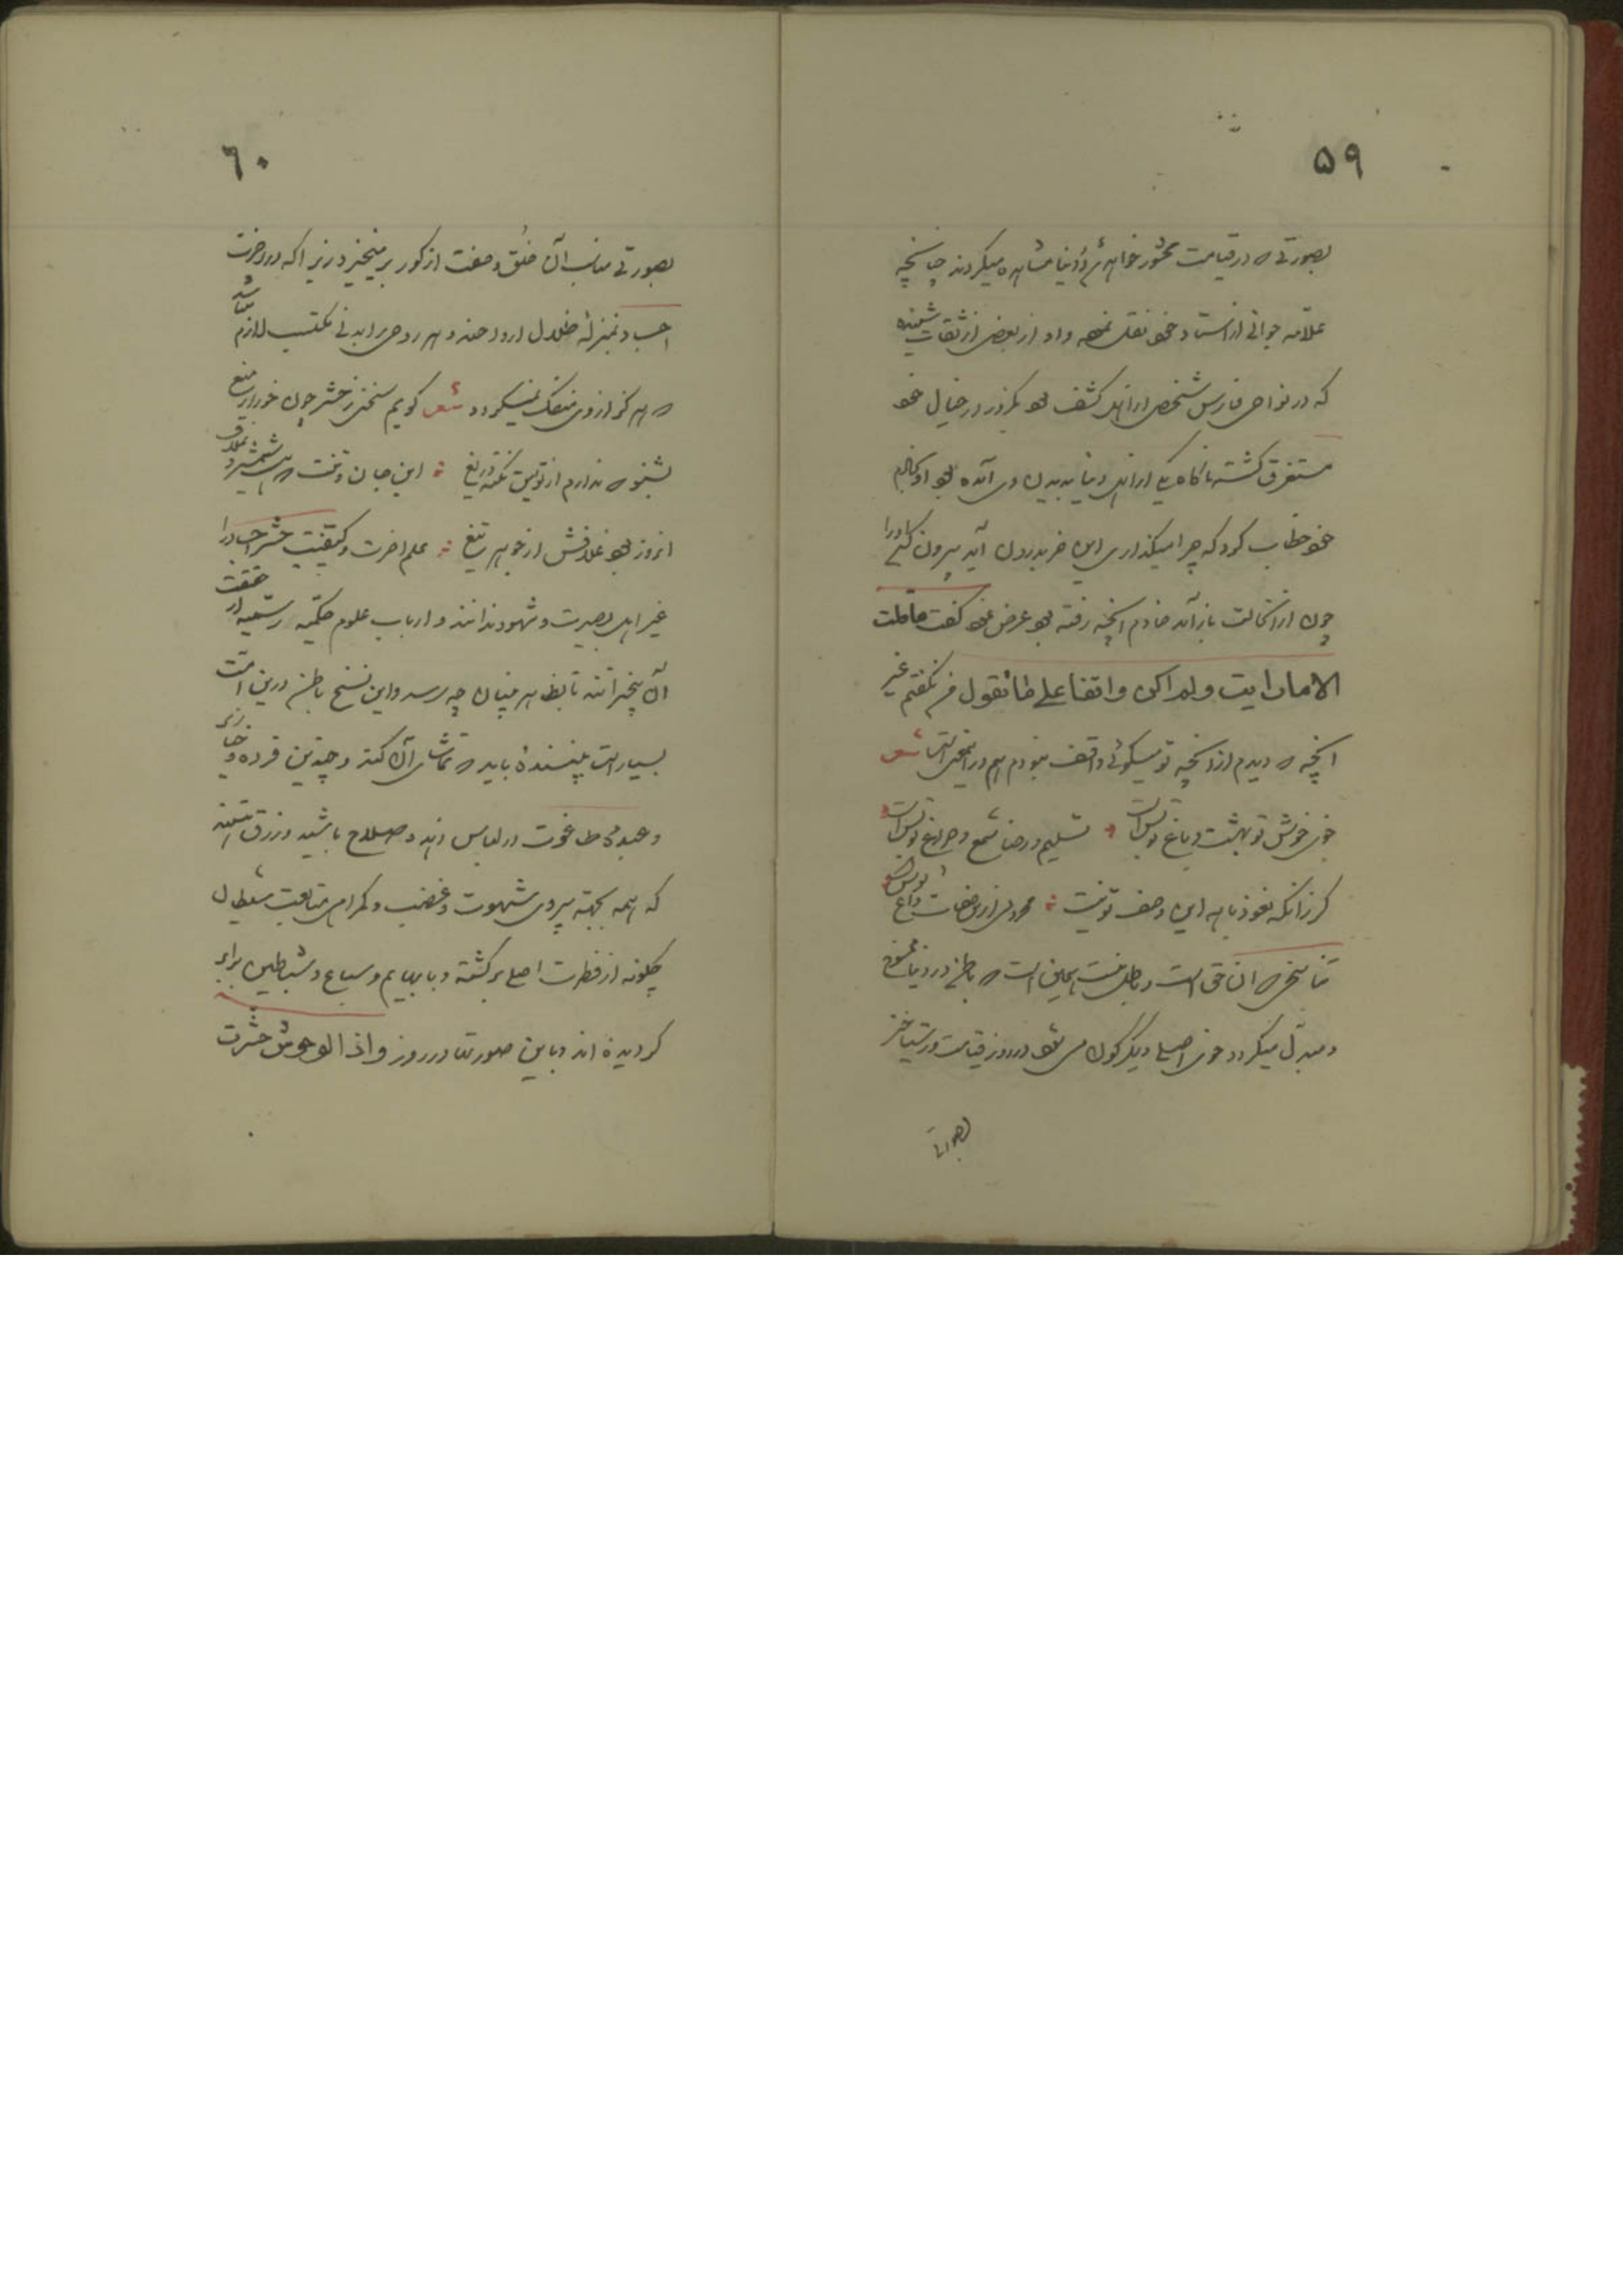 ۵۹
بصورتی که در قیامت محشور خواهد شد در دنیا مشاهده میکردند چنانچه
علامه دوانی از استاد خود نقل نموده و او از بعضی از ثقات شنیده
که در نواحی فارس شخصی از اهل کشف بود یکروز در خیال خود
مستغرق گشته ناگاه یکی از اهل دنیا بدیدن وی آمده بود او بخادم
خود خطاب کرد که چرا میگذاری این خر بدرون آید بیرون کن او را
چون از آنحالت باز آمد خادم آنچه رفته بود عرض نمود گفت ما قلت
الا ما رایت ولم اکن واقفا علی ما تقول من نگفتم غیر
آنچه که دیدم از آنچه تو میگوئی واقف نبودم هم در این معنی است شعر
خوی خوش تو بهشت و باغ تو بس است تسلیم و رضا شمع و چراغ تو بس است
گر زانکه نعوذ بالله این وصف تو نیست محرومی ازین صفات داغ تو بس است
تناسخی که آن حق است و باطل نیست همین است که باطن در دنیا ممسوخ
و مبدل میگردد خوی اصلی دیگرگون می شود در روز قیامت و رستاخیز
بصورتی
۶۰
بصورتی مناسب آن خلق و صفت از گور بر میخیزد زیرا که در آخرت
اجساد بمنزله ظلال ارواحند و هر روحی را بدنی مکتسب لازم میباشد
که هرگز از وی منفک نمیگردد شعر گویم سخنی ز حشر چون خور از میغ
بشنو که ندارم از تو این نکته دریغ این جان و تنت که هست شمشیر و غلاف
آنروز بود غلافش از جوهر تیغ علم آخرت و کیفیت حشر اجساد را
غیر اهل بصیرت و شهود ندانند و ارباب علوم حکمیه رسمیه از حقیقت
آن بیخبرانند تا بظاهر بینان چه رسد و این نسخ باطن درین امت
بسیار است بیننده باید که تماشای آن کند و چندین قرده و خنازیر
و عبده طاغوت در لباس زهد و صلاح باشند و زرق ببیند
که همه بجهة پیروی شهوت و غضب و گمراهی متابعت شیطان
چگونه از فطرت اصلی برگشته و با بهایم و سباع و شیاطین برابر
گردیده اند و باین صورتها در روز و اذا الوحوش حشرت